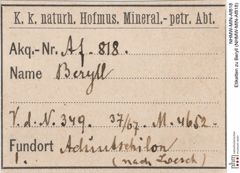 K. k. naturh. Hofmus. Mineral.-petr. Abt.
Akq.-Nr. Af. 818.
Name Beryll
V. d. N. 349. 37/67. M. 4652.
Fundort Aduntschilon
(nach Loesch)
NHMW-MIN-Af818
Etiketten zu Beryll (NHMW-MIN-Af818)